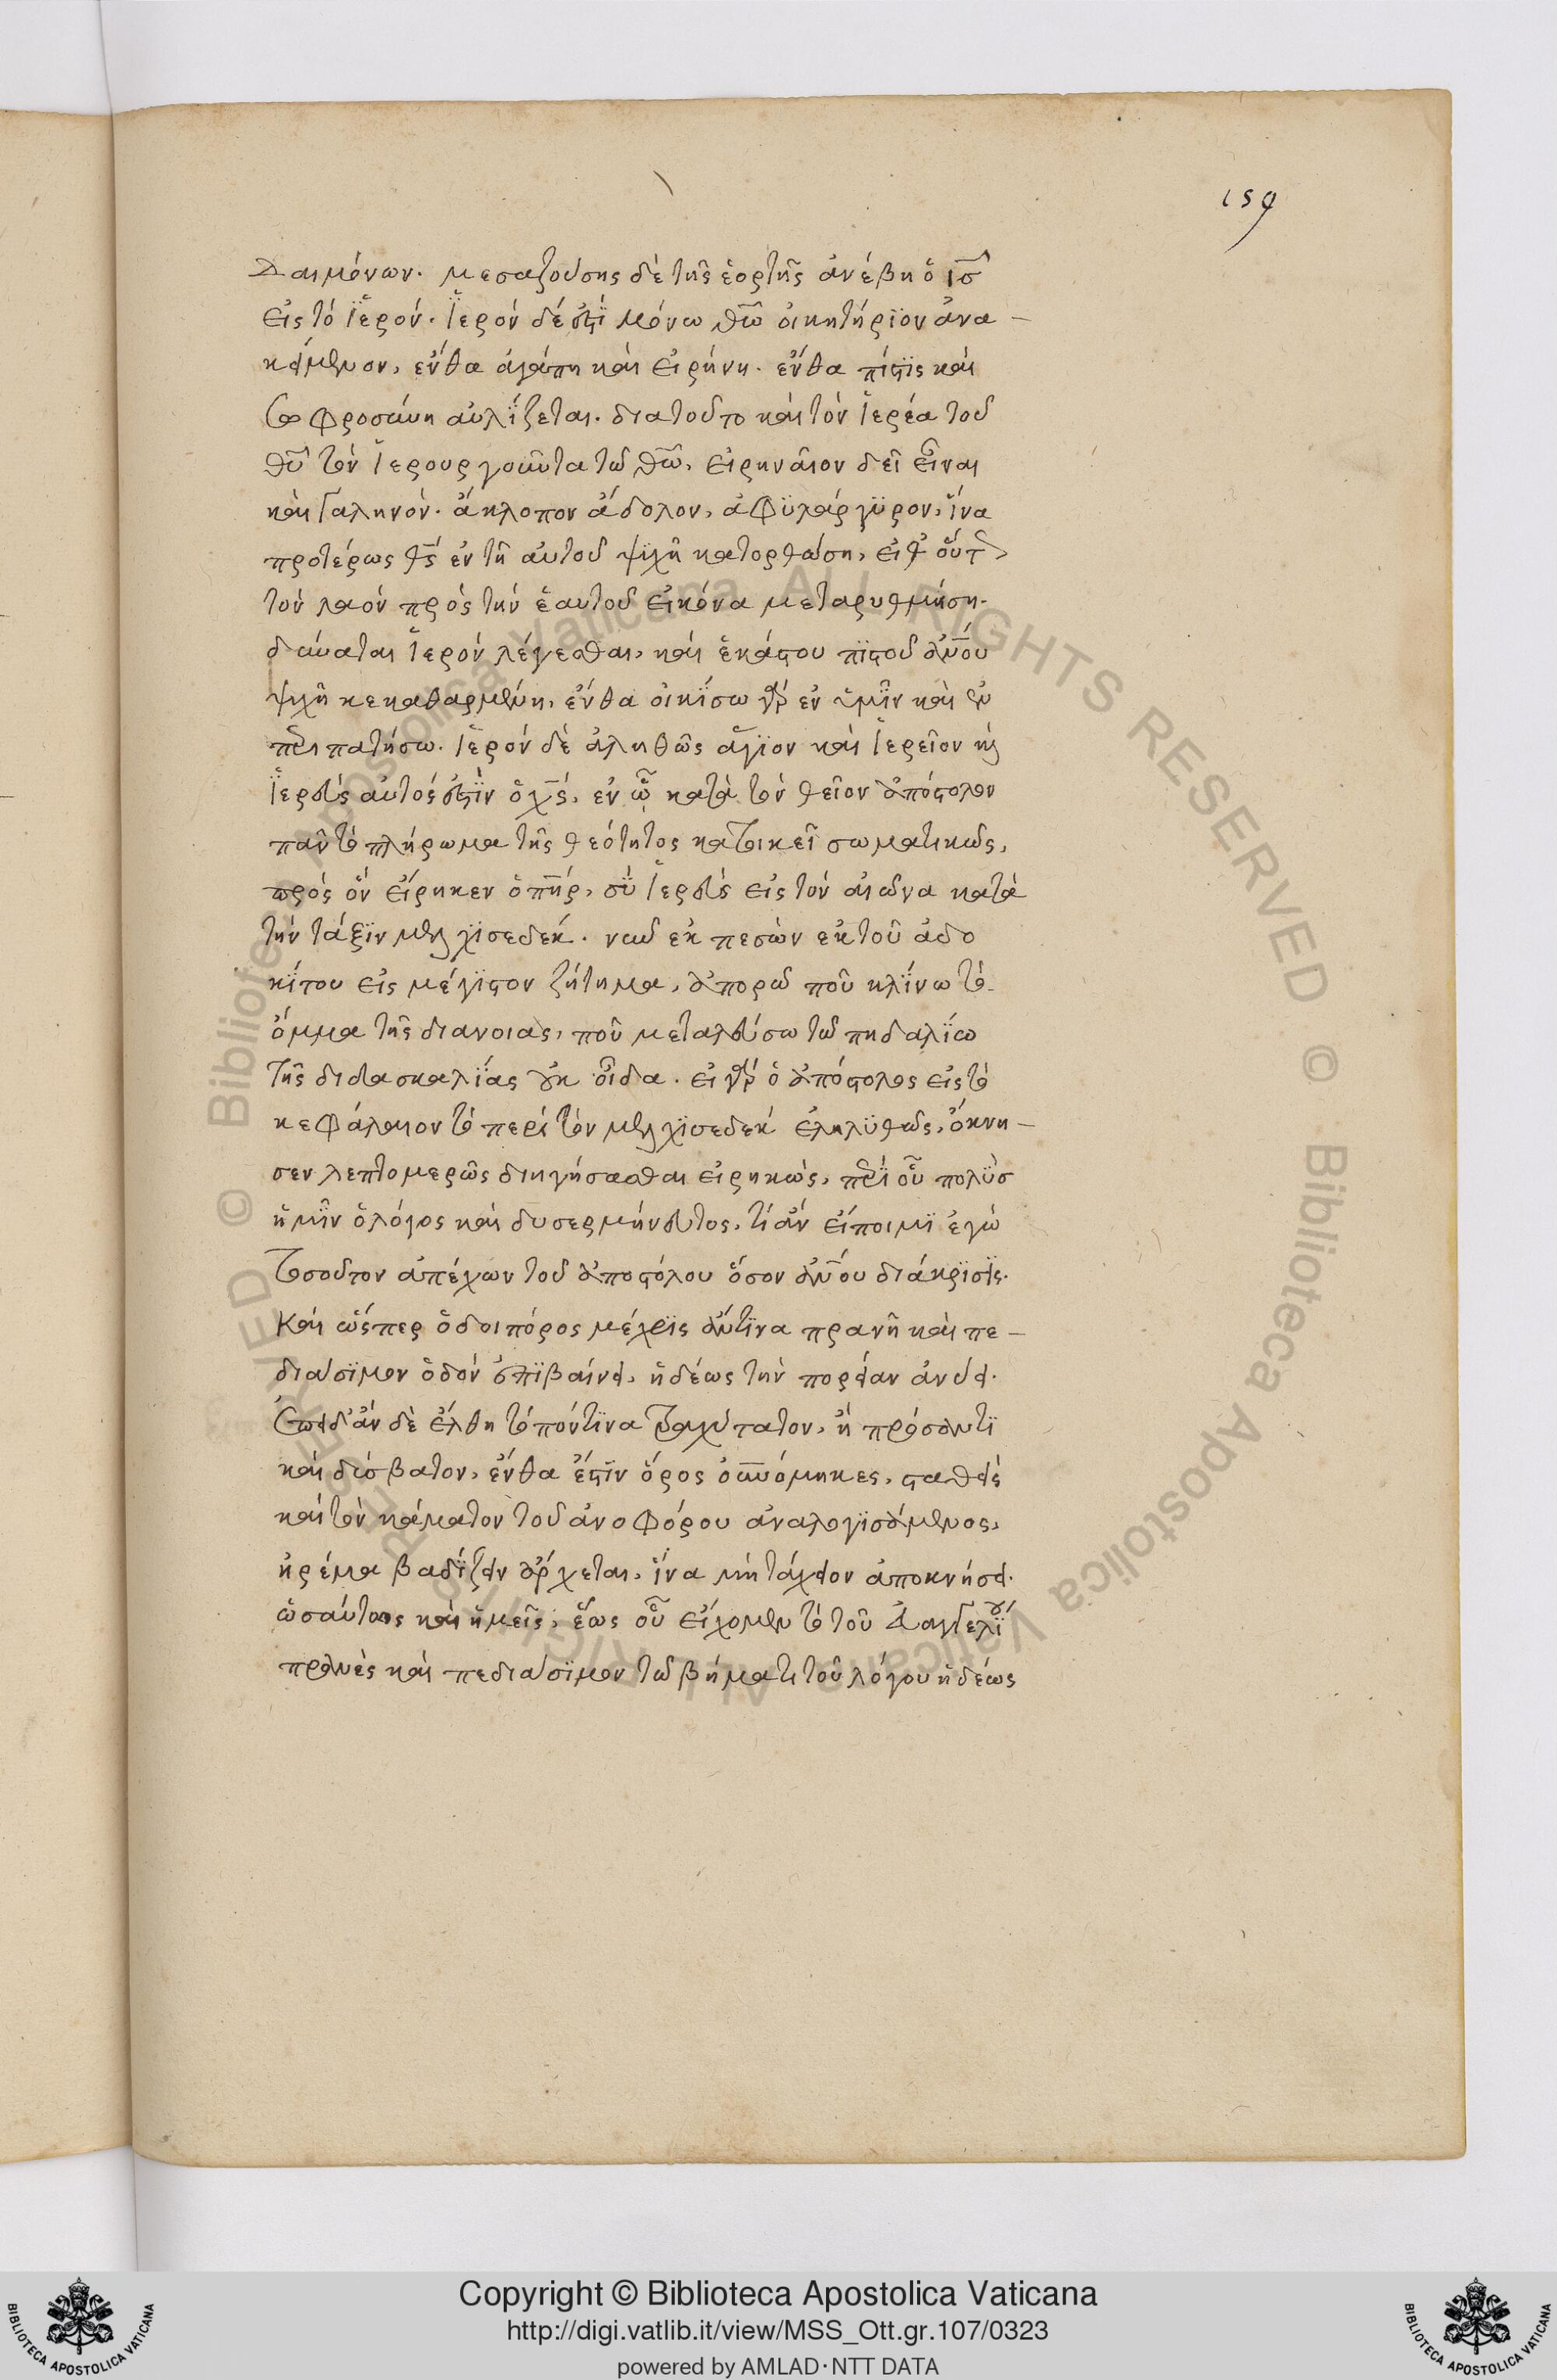 159
δαιμόνων. μεσαζούσης δὲ τῆς ἑορτῆς ἀνέβη ὁ ις
εἰς τὸ ἱερόν. ἱερὸν δέ ἐστι μόνω θω οἰκητήριον ἀνα
κείμενον, ἔνθα ἀγάπη καὶ εἰρήνη. ἔνθα πίστις καὶ
σωφροσύνη αὐλίζεται. διατοῦτο καὶ τὸν ἱερέα τοῦ
θυ τὸν ἱερουργοῦντα τῶ θω, εἰρηναῖον δεῖ εἶναι
καὶ γαληνόν. ἄκλοπον ἄδολον, ἀφιλάργυρον, ἵνα
προτέρως θς ἐν τῆ αὐτοῦ ψυχῆ κατορθώση, εἶθ οὕτως
τὸν λαὸν πρὸς τὴν ἑαυτοῦ εἰκόνα μεταρυθμήση.
δύναται ἱερὸν λέγεσθαι, καὶ ἑκάστου πιστοῦ ανου
ψυχὴ κεκαθαρμένη, ἔνθα οἰκήσω γὰρ ἐν ὑμῖν καὶ ἐν
περιπατήσω. ἱερὸν δὲ ἀληθῶς ἅγιον καὶ ἱερεῖον καὶ
ἱερεύς αὐτός ἐστιν ὁ χς, ἐν ὧ κατὰ τὸν θεῖον ἀπόστολον
πᾶν τὸ πλήρωμα τῆς θεότητος κατοικεῖ σωματικῶς,
πρὸς ὃν εἴρηκεν ὁ πηρ, σὺ ἱερεὺς εἰς τὸν αἰῶνα κατὰ
τὴν τάξιν μελχισεδέκ. νῦν ἐκπεσὼν ἐκ τοῦ ἀδο
κίτου εἰς μέγιστον ζήτημα, ἀπορῶ ποῦ κλίνω τὸ
ὄμμα τῆς διανοιας, ποῦ μεταλεύσω τῶ πηδαλίω
τῆς διδασκαλίας οὐκ οἶδα. εἰ γὰρ ὁ ἀπόστολος εἰς τὸ
κεφάλαιον τὸ περὶ τὸν μελχισεδὲκ ἐληλυθώς, ὄκνη
σεν λεπτομερῶς διηγήσασθαι εἰρηκώς, περὶ οὗ πολὺσ
ἡμῖν ὁ λόγος καὶ δυσερμήνευτος, τί ἂν εἴποιμι ἐγὼ
τοσοῦτον ἀπέχων τοῦ ἀποστόλου ὅσον ανου διάκρισις.
Καὶ ὥσπερ ὁδοιπόρος μέχρις ἄντινα πρανῆ καὶ πε
διάσιμον ὁδὸν ἐπιβαίνει, ἡδέως τὴν πορείαν ἀνύει.
ἐπειδ' ἂν δὲ ἔλθη τόπόν τινα τραχύτατον, ἢ πρόσαντι
καὶ δύσβατον, ἔνθα ἔστιν ὄρος οὐνόμηκες, σταθεὶς
καὶ τὸν κάματον τοῦ ἀνοφόρου ἀναλογισάμενος,
ἠρέμα βαδίζειν ἄρχεται, ἵνα μὴ τάχειον ἀποκνήσει.
ὡσαύτως καὶ ἡμεῖς, ἕως οὗ εἴχομεν τὸ τοῦ εὐαγγελίου
πρανὲς καὶ πεδιάσιμον τῶ βήματι τοῦ λόγου ἡδέως
Copyright © Biblioteca Apostolica Vaticana
http://digi.vatlib.it/view/MSS_Ott.gr.107/0323
powered by AMLAD·NTT DATA